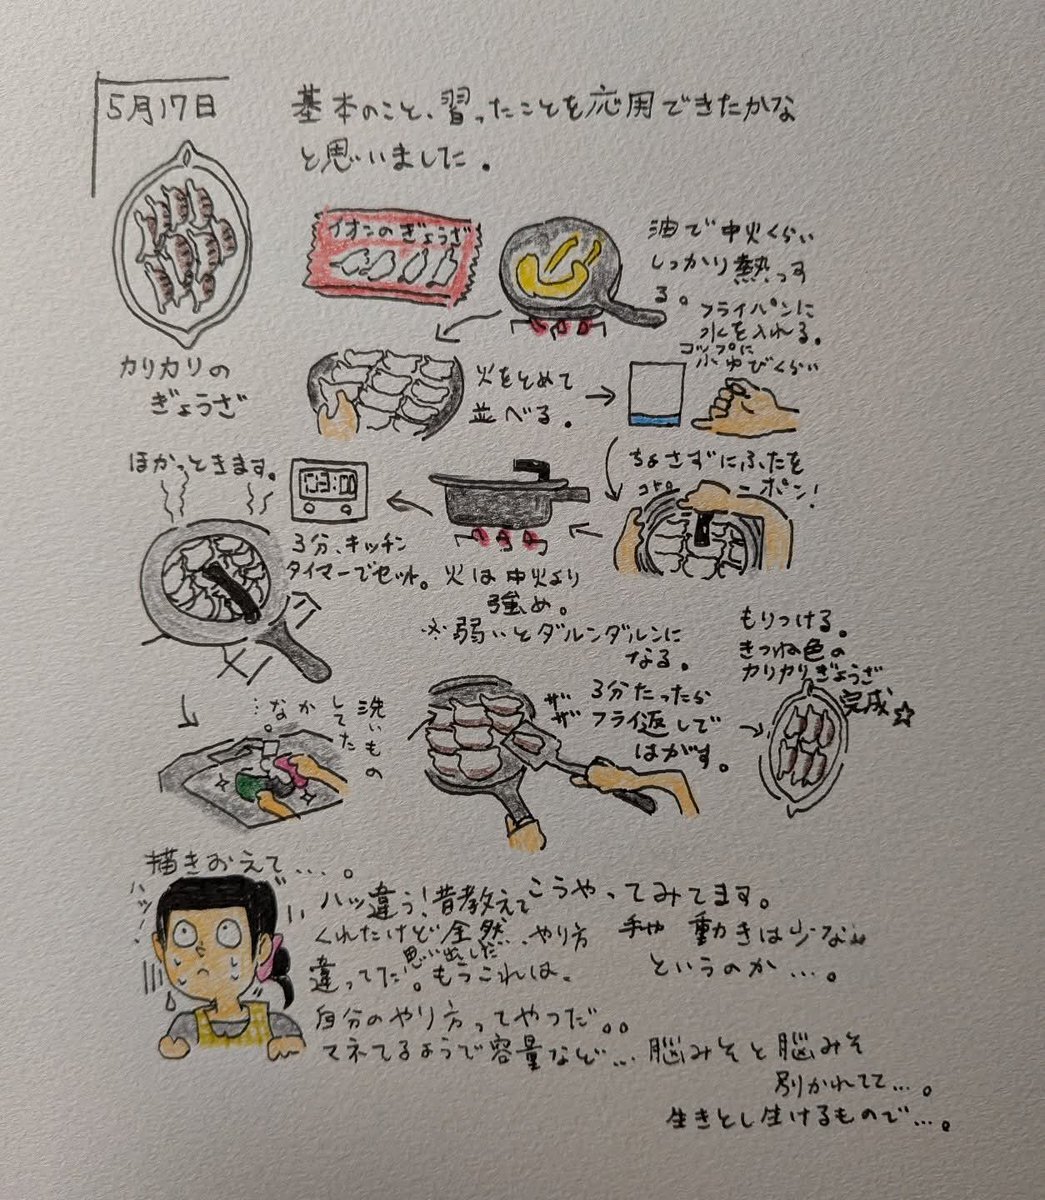 5月17日
基本のこと、習ったことを応用できたかな
と思いました。
カリカリの
ぎょうざ
イオンのぎょうざ
油で中火くらい
しっかり熱っす
る。
フライパンに
水を入れる。
コップに
小ゆびくらい
火をとめて
並べる。
ちょさずにふたを
ポン!
火は中火より
強め。
※弱いとダルンダルンに
なる。
03:00
3分、キッチン
タイマーでセット。
ほかっときます。
洗いもの
してた
なかし
3分たったら
フライ返しで
はがす。
ザザ
ザ
もりつける。
きつね色の
カリカリぎょうざ
完成☆
描きおえて…。
ハッ
ハッ違う!昔教えて
くれたけど全然、やり方
違ってた。思い出した
もうこれは、
自分のやり方ってやつだ。。
マネてるようで容量など…脳みそと脳みそ
別かれてて…。
生きとし生けるもので…。
こうやってみてます。
手や動きは少ない
というのか…。